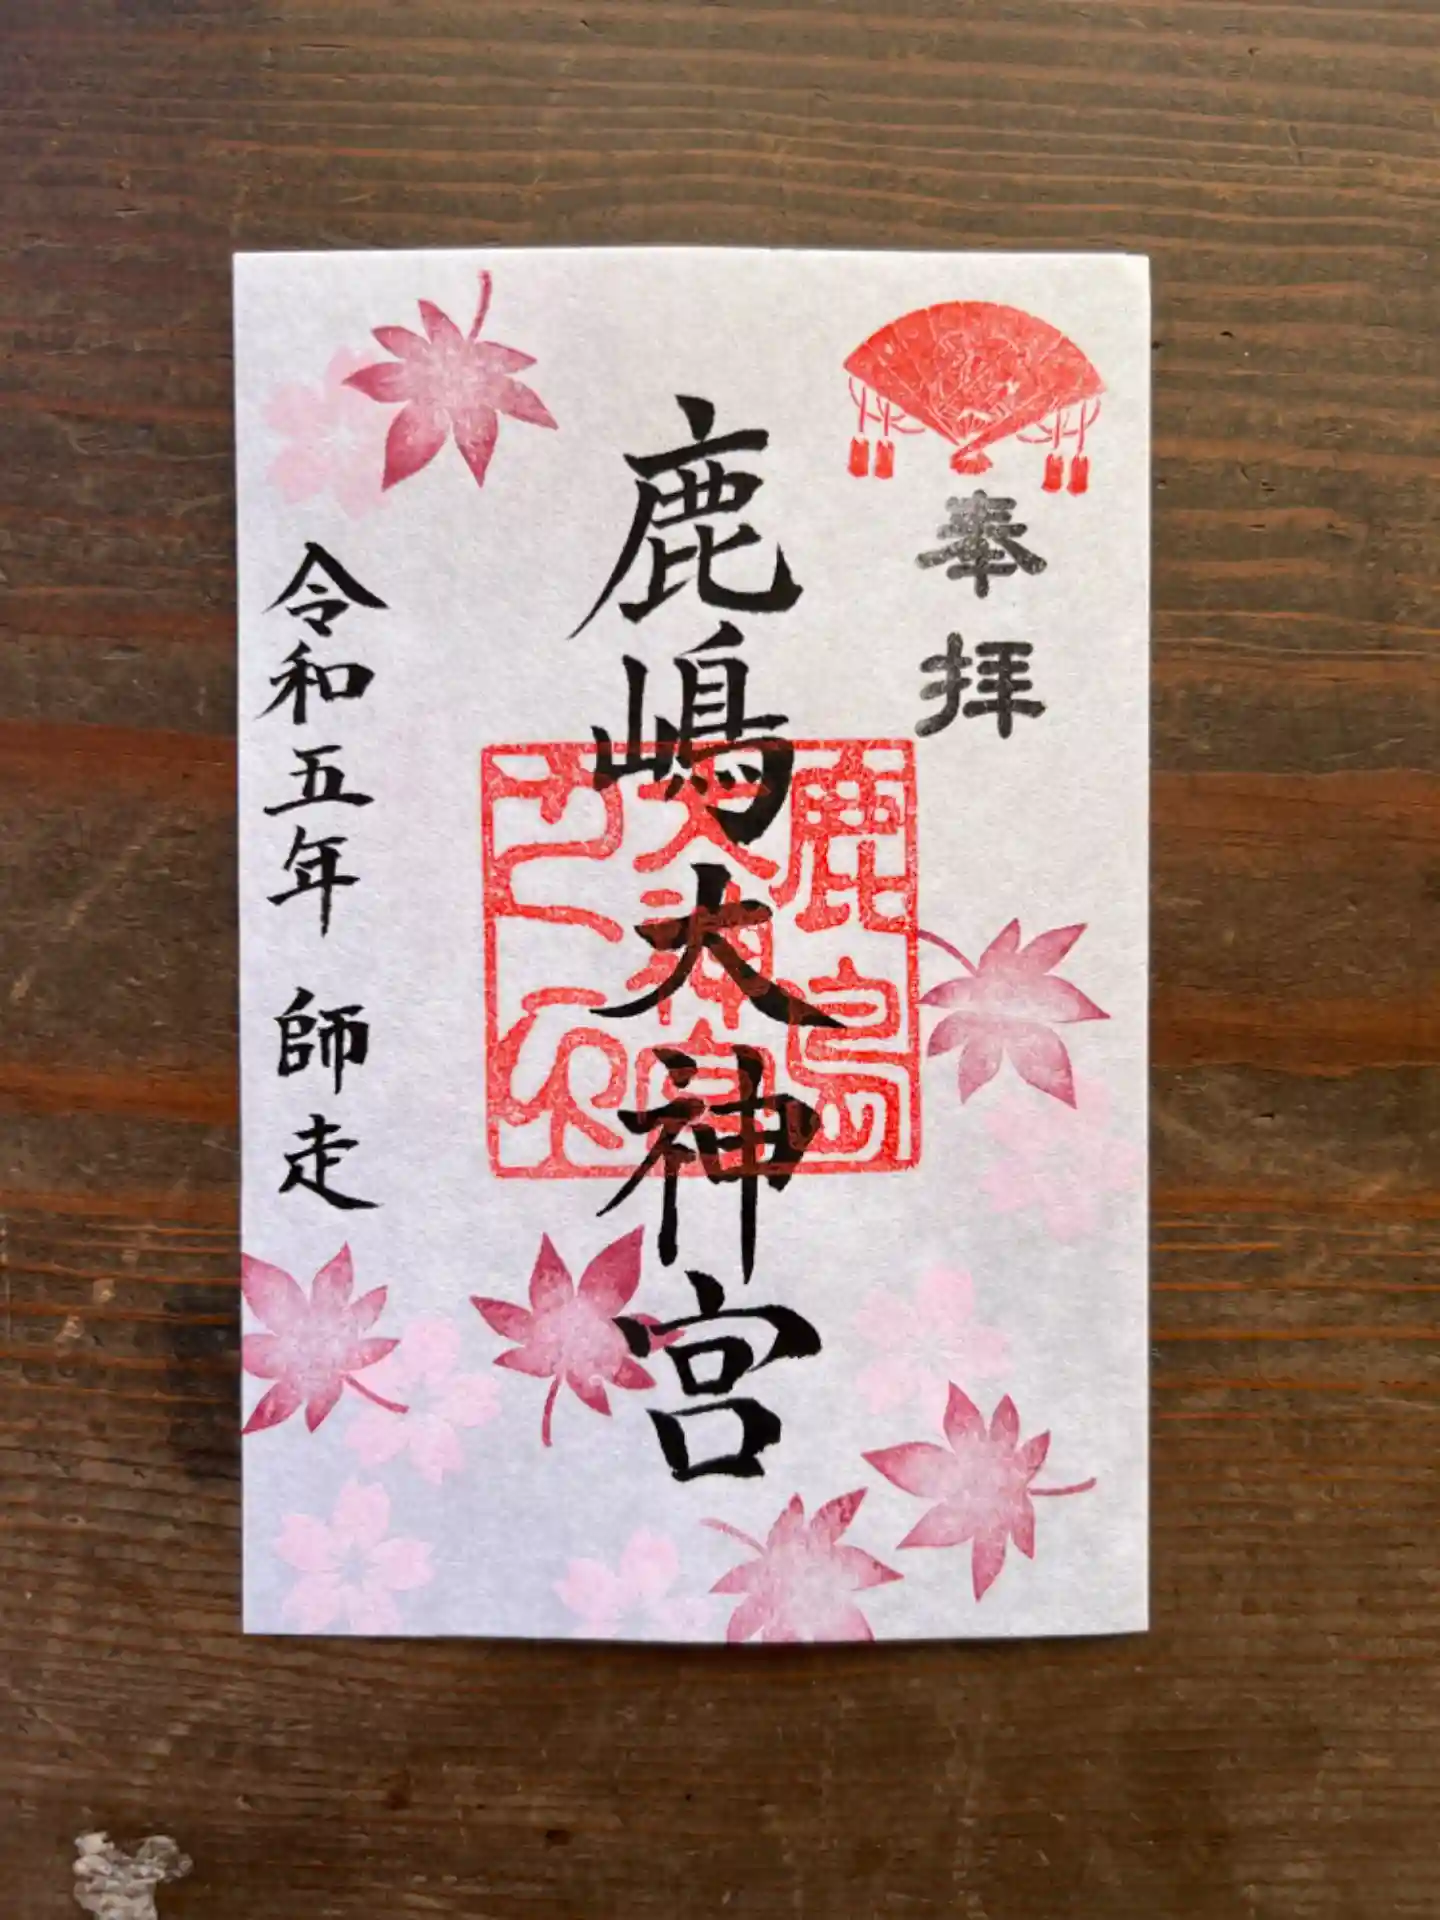 奉拝
鹿嶋大神宮
鹿島
大神宮
之印
令和五年 師走